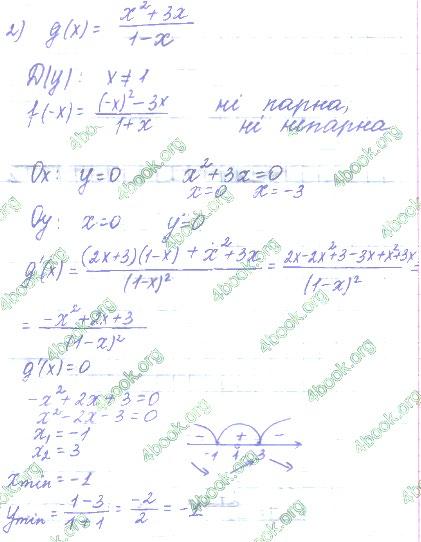 2) g(x) = (x² + 3x)/(1 - x)
D(y): x ≠ 1
f(-x) = ((-x)² - 3x)/(1 + x) ні парна,
ні непарна
Ox: y = 0 x² + 3x = 0
x = 0 x = -3
Oy: x = 0 y = 0
g'(x) = ((2x+3)(1-x) + x² + 3x)/(1-x)² = (2x - 2x² + 3 - 3x + x² + 3x)/(1-x)² =
= (-x² + 2x + 3)/(1-x)²
g'(x) = 0
-x² + 2x + 3 = 0
x² - 2x - 3 = 0
x₁ = -1
x₂ = 3
- + -
-1 1 3
x min = -1
y min = (1 - 3)/(1 + 1) = -2/2 = -1
4book.org